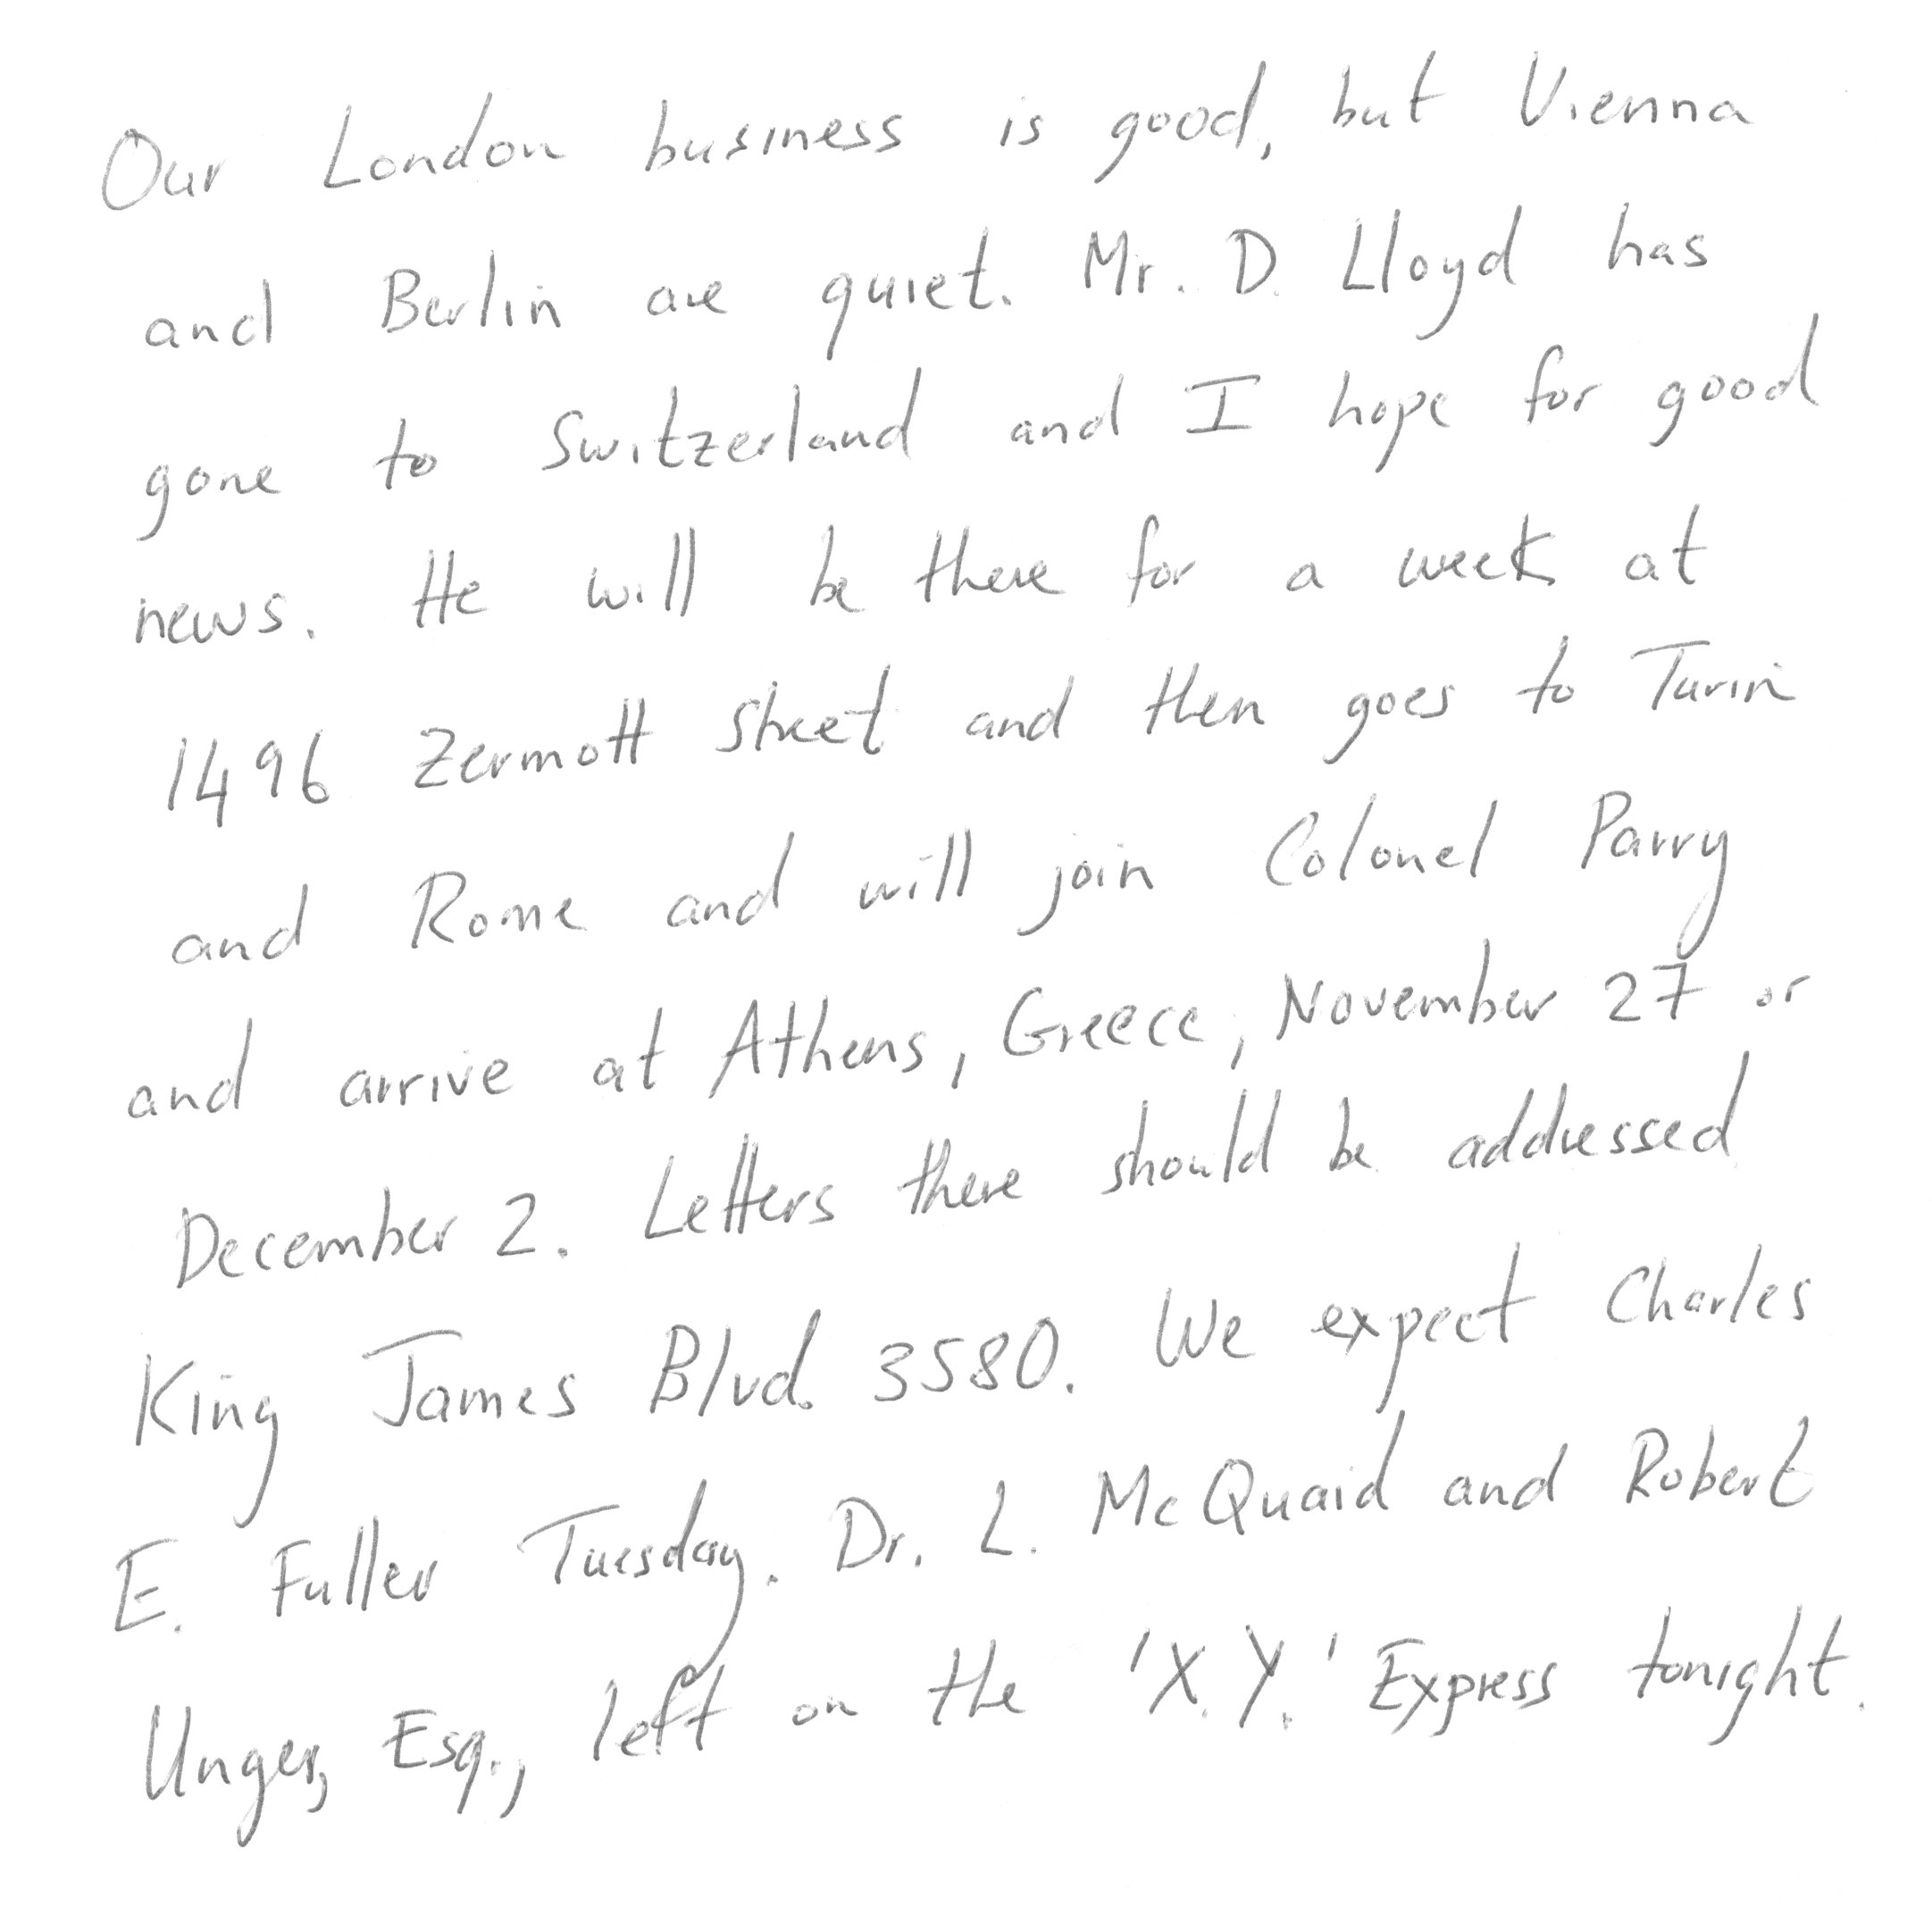 Our London business is good, but Vienna
and Berlin are quiet. Mr. D. Lloyd has
gone to Switzerland and I hope for good
news. He will be there for a week at
1496 Zermott Street and then goes to Turin
and Rome and will join Colonel Parry
and arrive at Athens, Greece, November 27 or
December 2. Letters there should be addressed
King James Blvd. 3580. We expect Charles
E. Fuller Tuesday. Dr. L. McQuaid and Robert
Unger, Esq., left on the 'X.Y.' Express tonight.